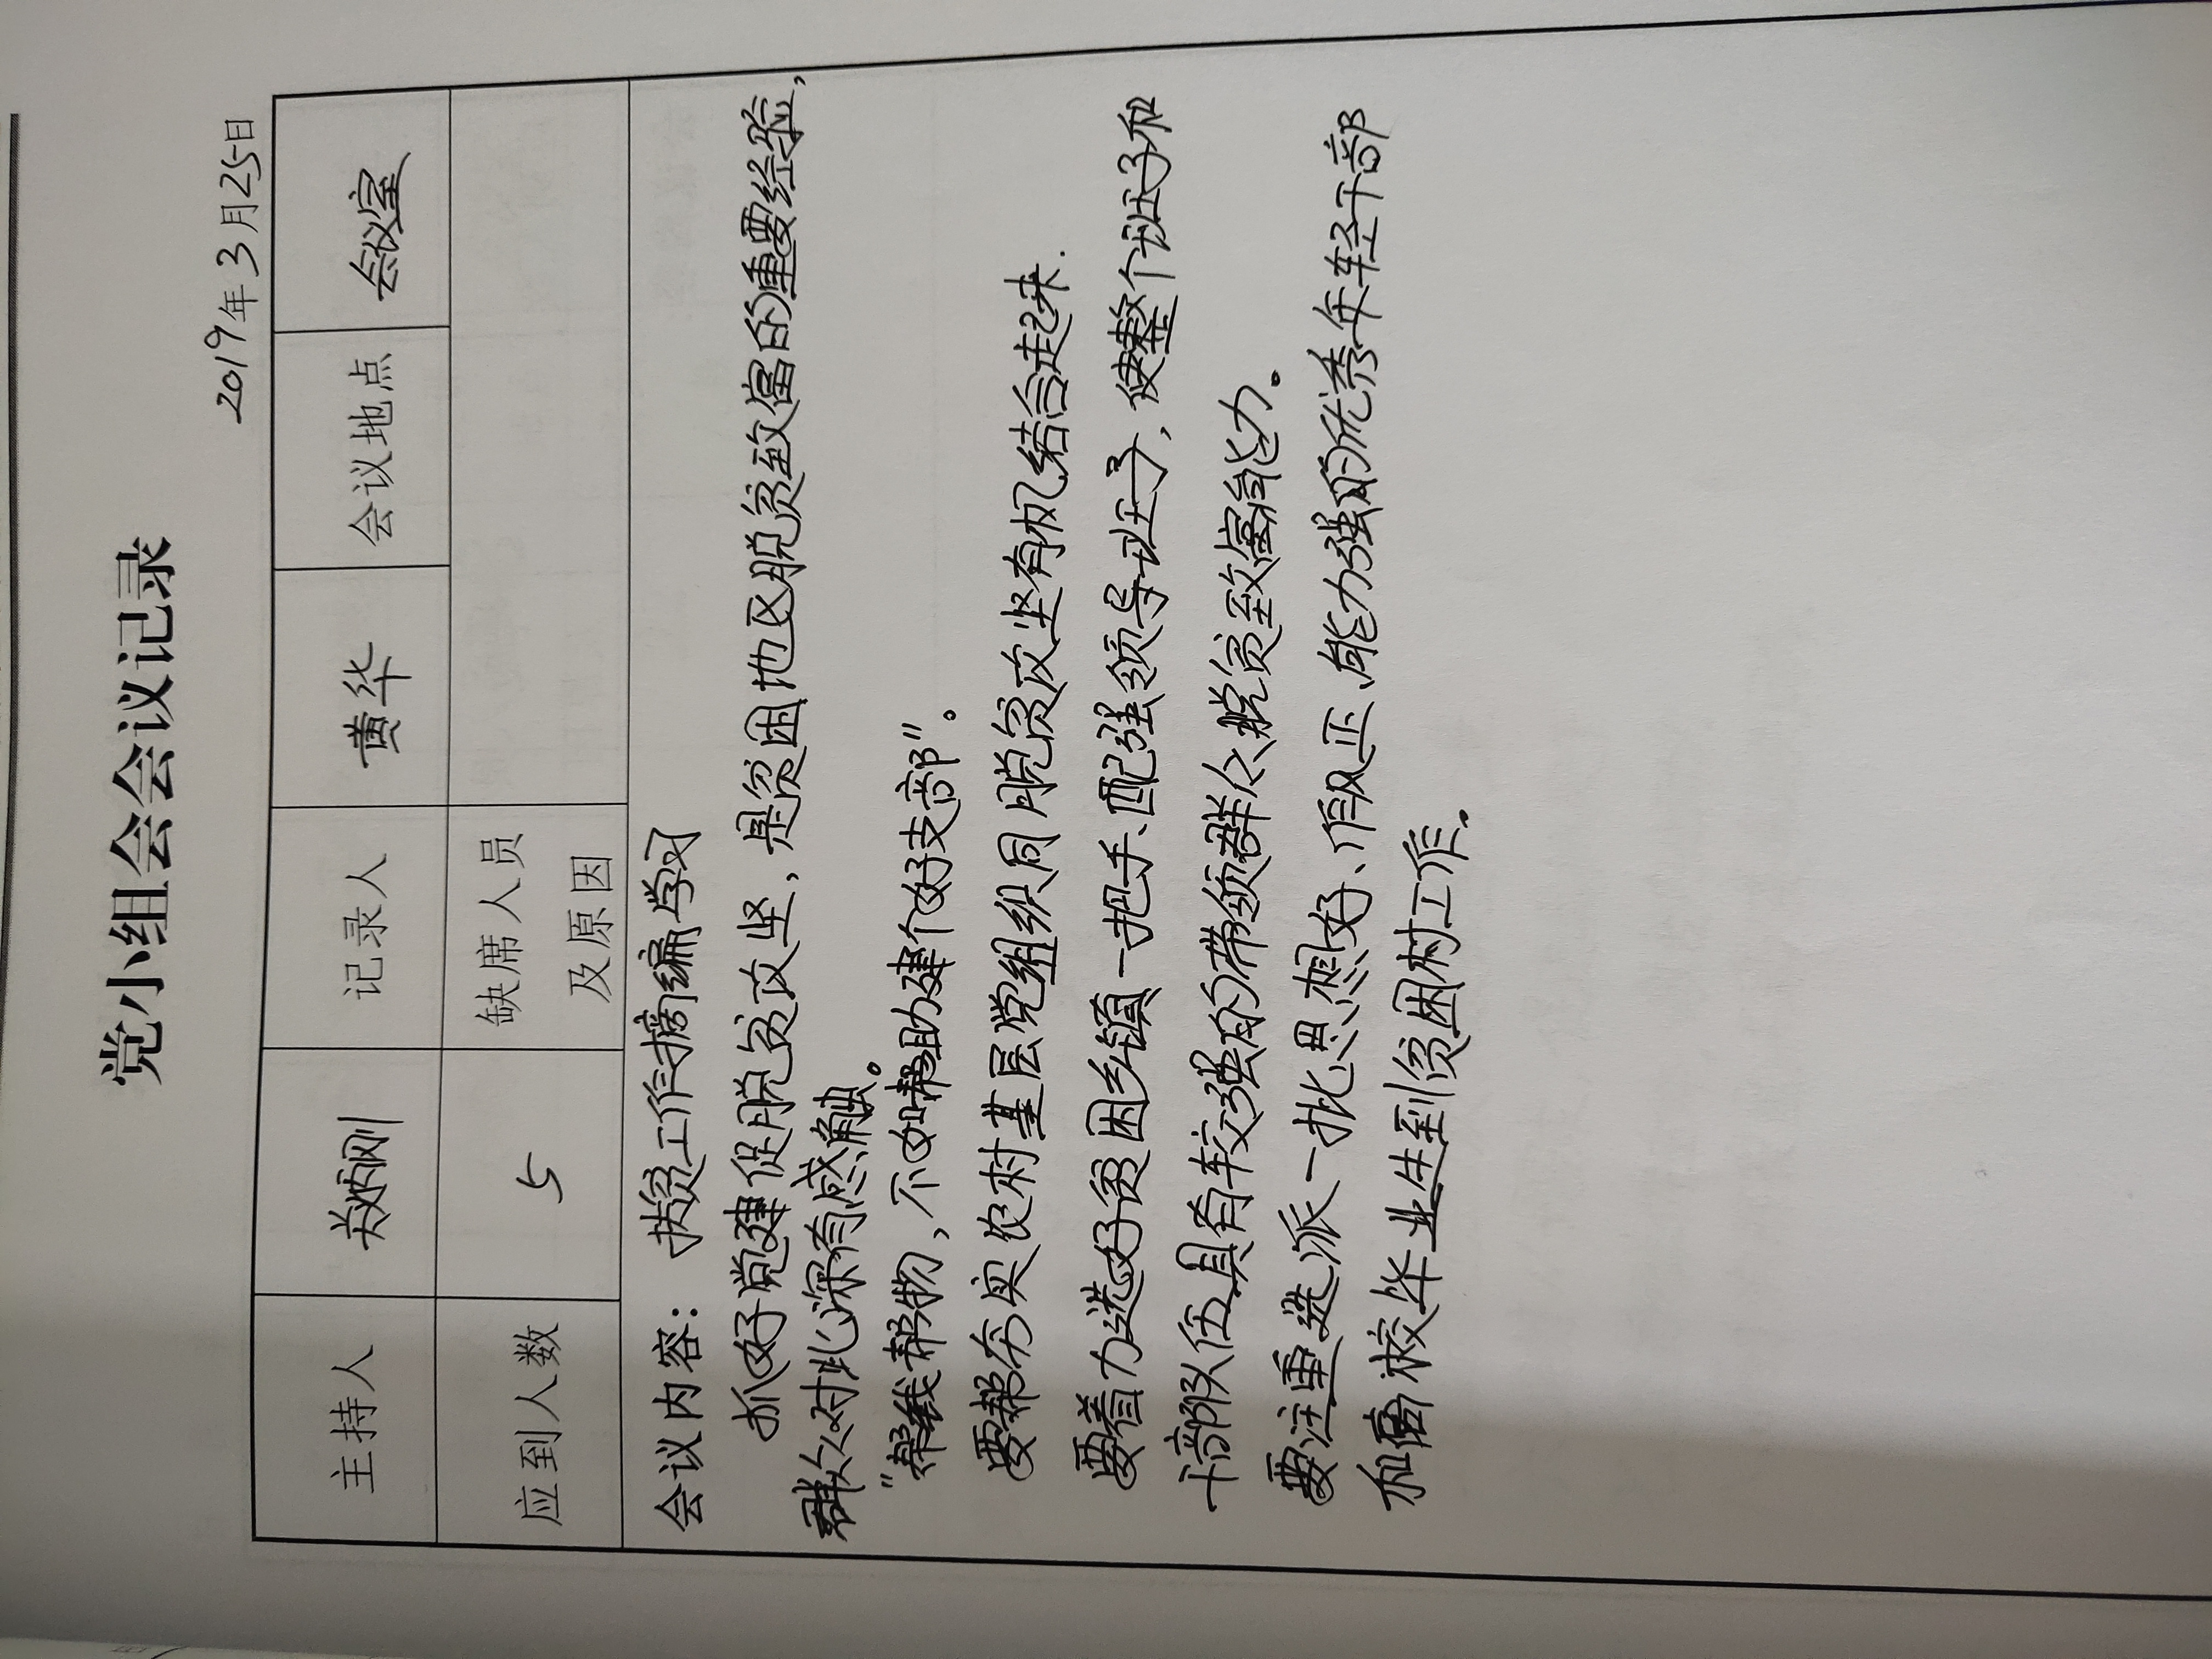 党小组会会议记录
2019年3月25日
主持人 郑炳刚 记录人 黄华 会议地点 会议室
应到人数 5 缺席人员
及原因
会议内容：扶贫工作摘编学习
抓好党建促脱贫攻坚，是贫困地区脱贫致富的重要经验，
群众对此深有感触。
“帮钱帮物，不如帮助建个好支部”。
要帮夯实农村基层党组织同脱贫攻坚有机结合起来.
要着力选好贫困乡镇一把手、配强领导班子，使整个班子和
干部队伍具有较强的带领群众脱贫致富能力。
要注重选派一批思想好、作风正、能力强的优秀年轻干部
和高校毕业生到贫困村工作.